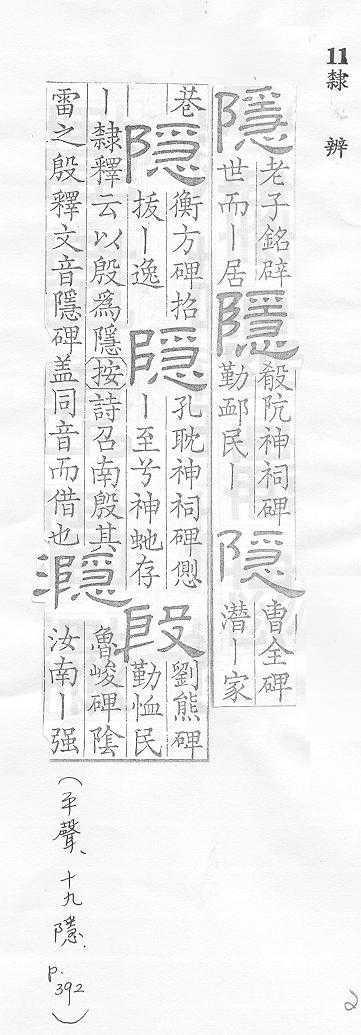 11 隸辨
隱 老子銘辟
世而丨居
隱 殽阬神祠碑
勤卹民丨
隱 曹全碑
潛丨家
巷
隱 衡方碑招
拔丨逸
隱 孔耽神祠碑
丨至兮神虵存
殷 劉熊碑
勤恤民
丨隸釋云以殷爲隱按詩召南殷其
雷之殷釋文音隱碑盖同音而借也
濦 魯峻碑陰
汝南丨强
(平聲、十九隱. p.392)
2